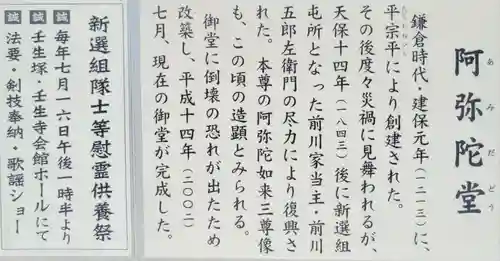 阿弥陀堂
あみだどう
鎌倉時代・建保元年（一二一三）に、
平宗平により創建された。
その後度々災禍に見舞われるが、
天保十四年（一八四三）後に新選組
屯所となった前川家当主・前川
五郎左衛門の尽力により復興さ
れた。本尊の阿弥陀如来三尊像
も、この頃の造顕とみられる。
御堂に倒壊の恐れが出たため
改築し、平成十四年（二〇〇二）
七月、現在の御堂が完成した。
新選組隊士等慰霊供養祭
誠 毎年七月一六日午後一時半より
誠 壬生塚・壬生寺会館ホールにて
誠 法要・剣技奉納・歌謡ショー